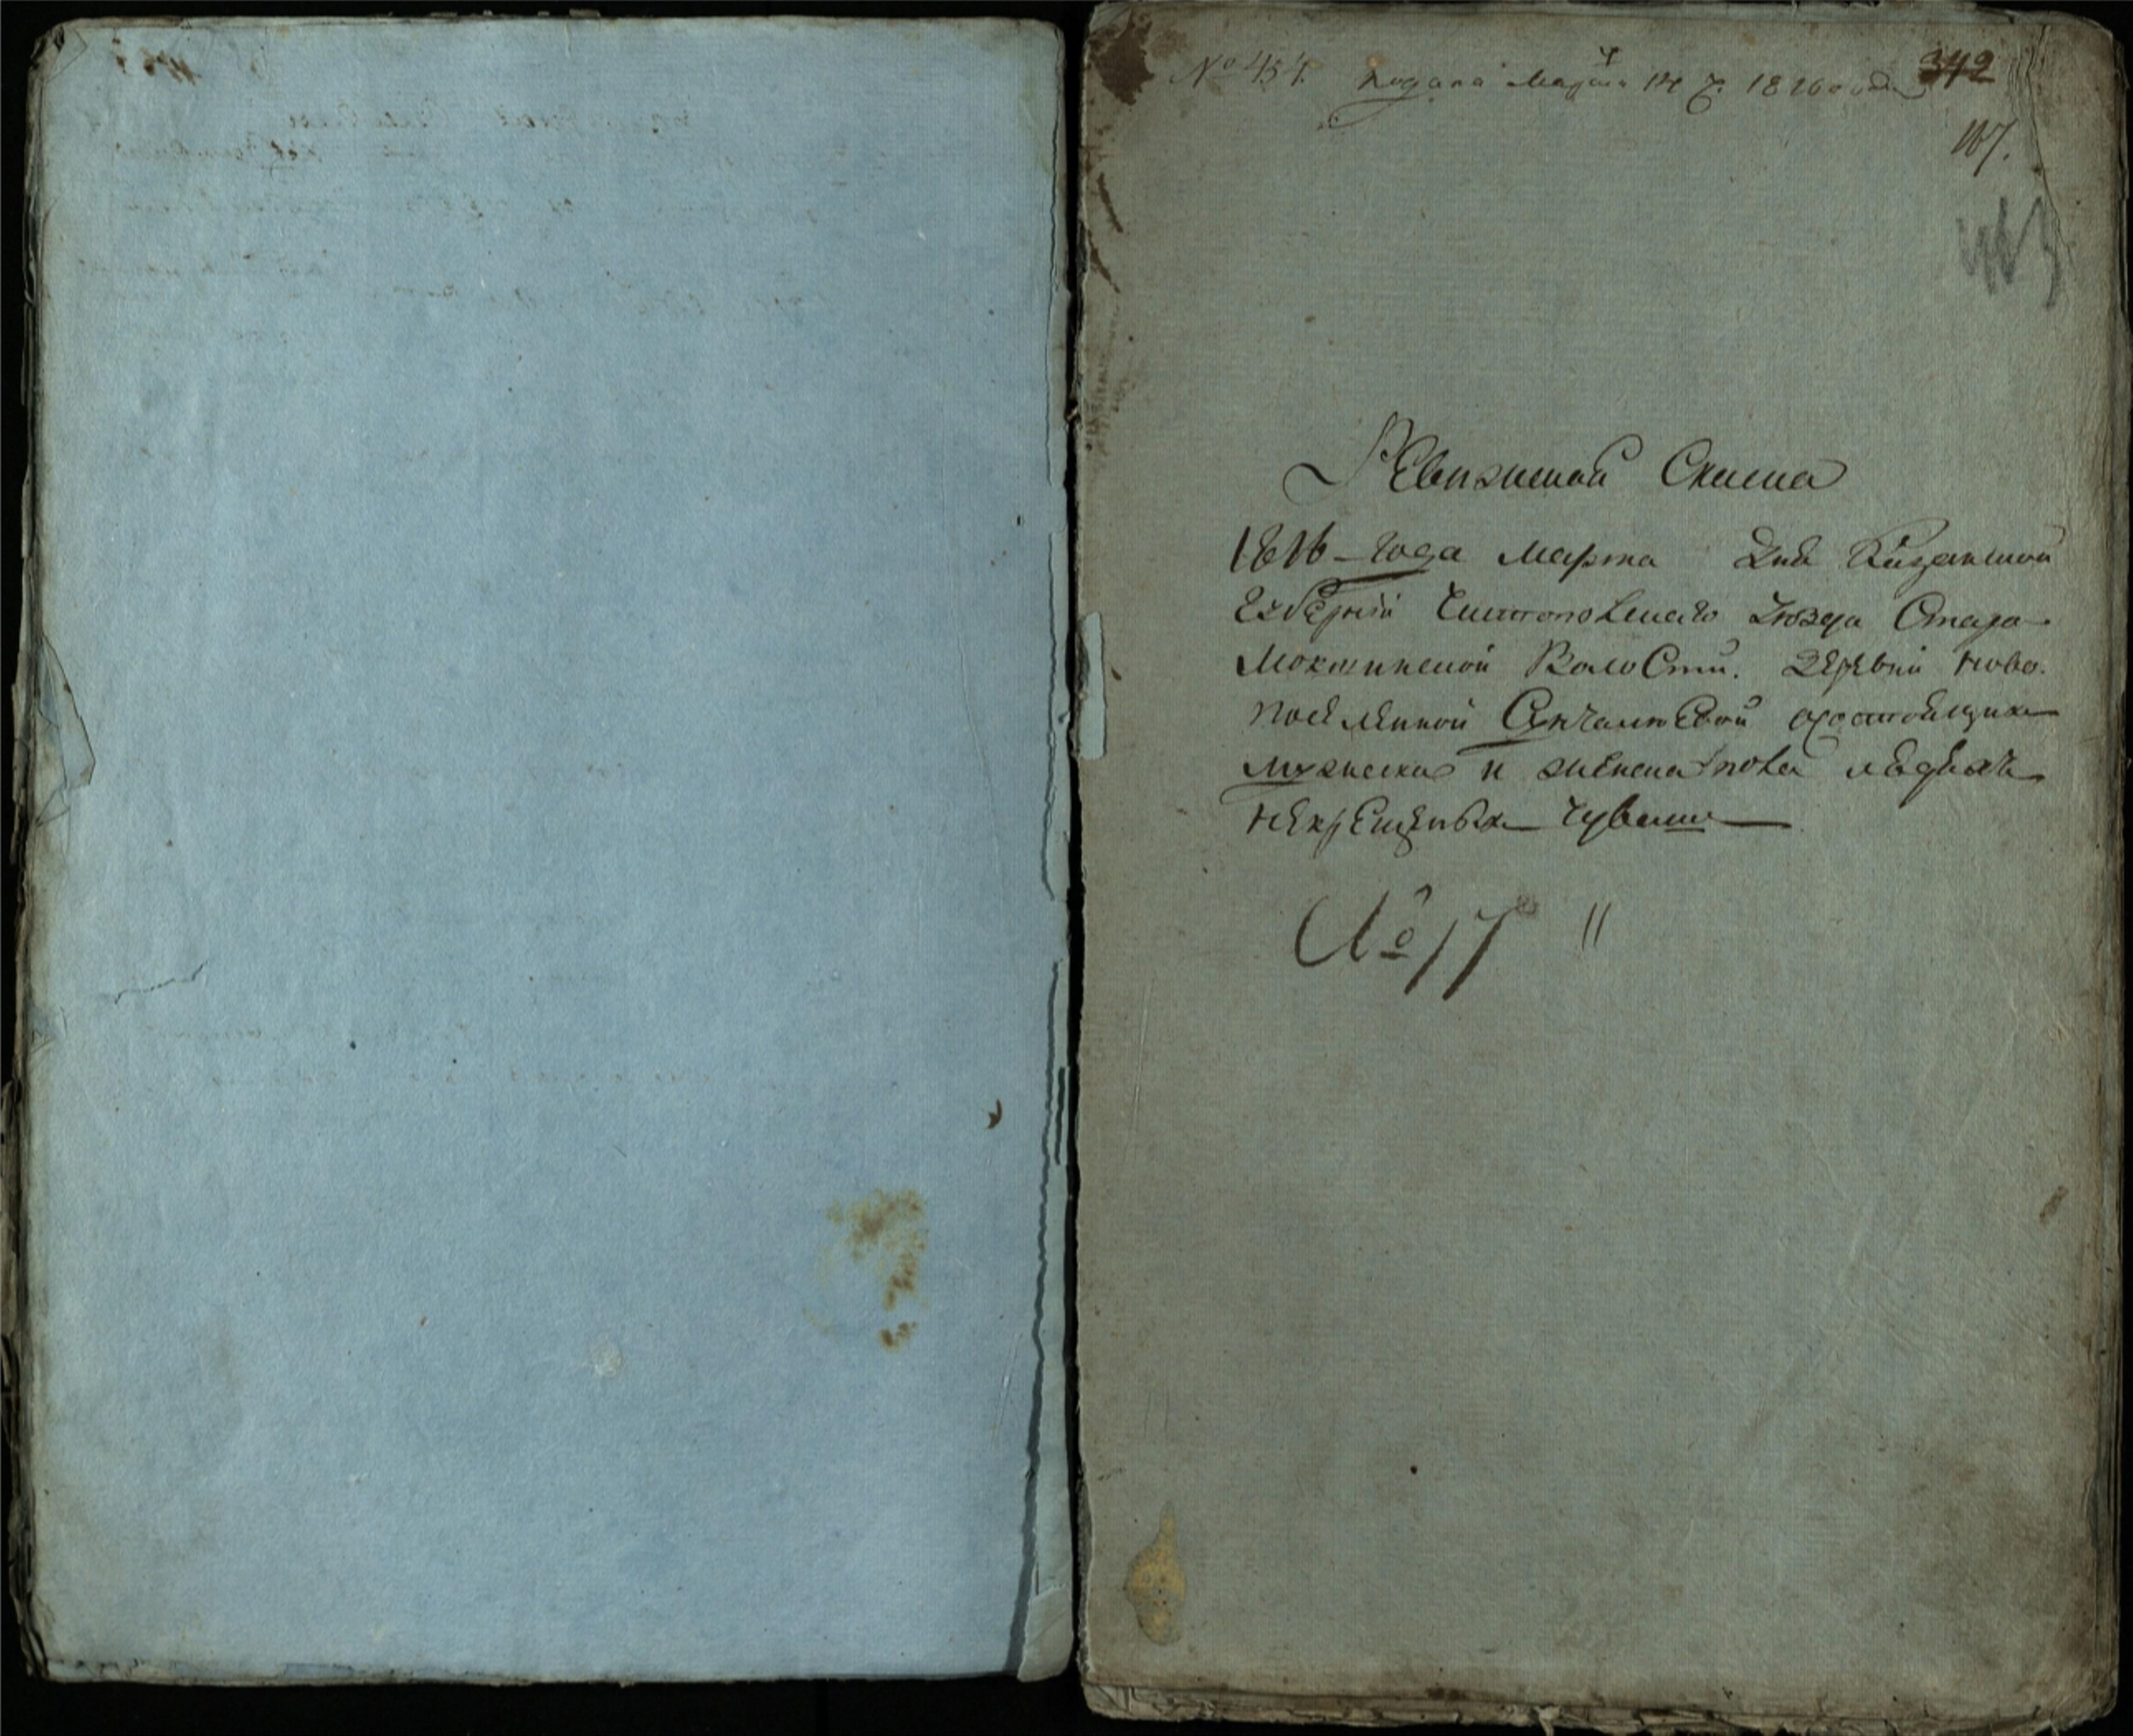 № 454. подана Марта 14 ч. 1816 года 342
107.
463
Ревизская Скаска
1816 года Марта дня Казанской
Губернии Чистопольскаго уезда Старо
Мокшинской Волости. Деревни ново
поселенной о состоящих
мужеска и женска пола людях
некрещеных Чуваш
№ 17